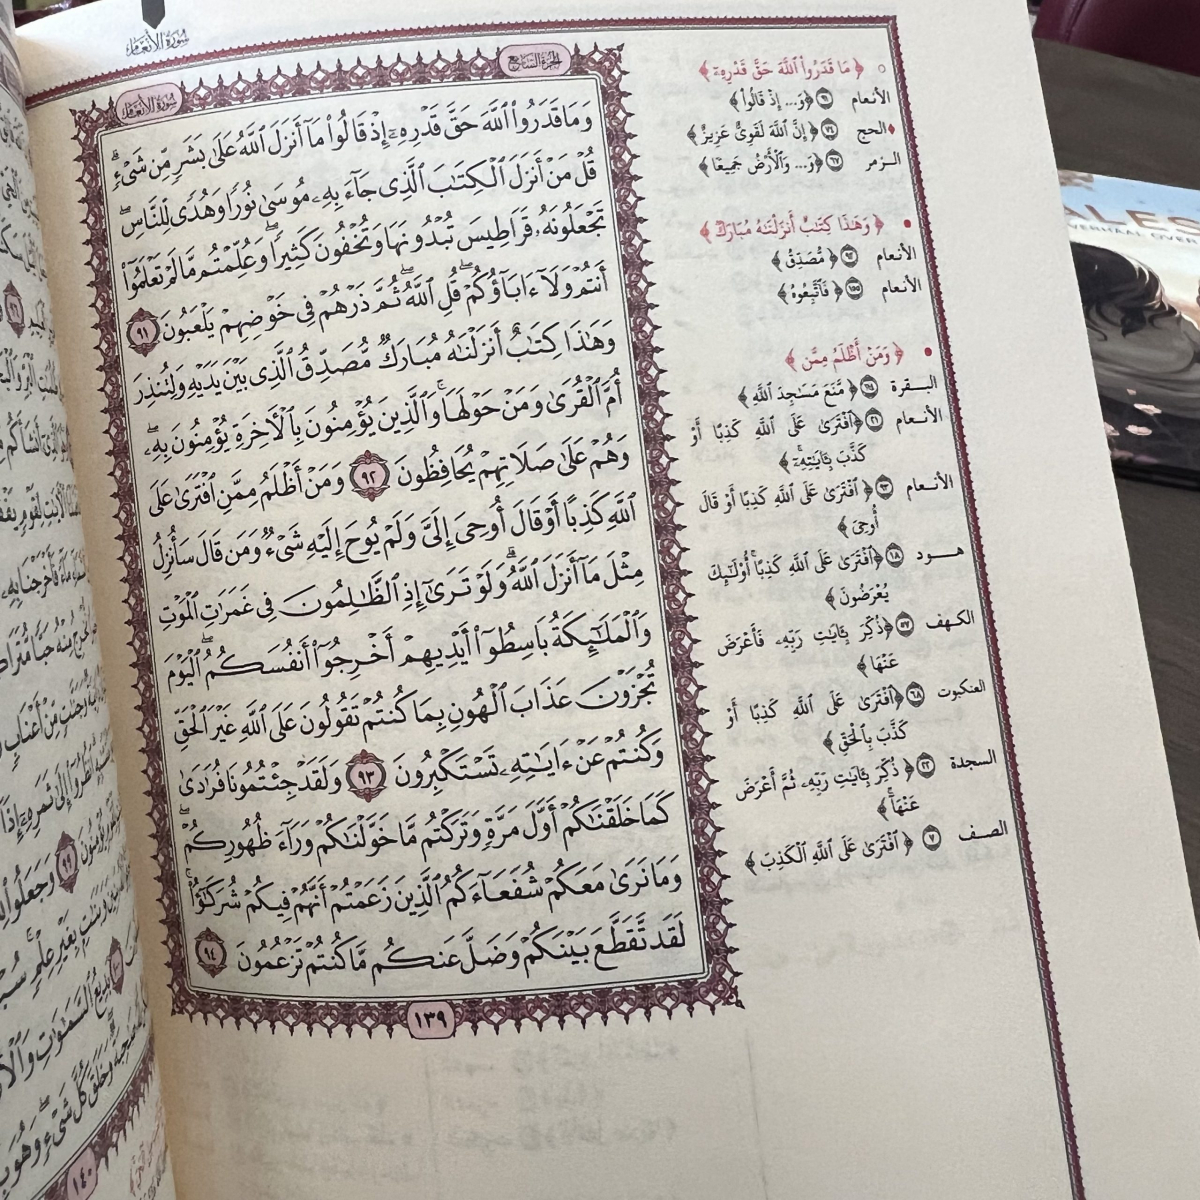 سُورَةُ الأَنْعَامِ
الجُزْءُ السَّابِعُ
سُورَةُ الأَنْعَامِ
وَمَا قَدَرُوا۟ ٱللَّهَ حَقَّ قَدْرِهِۦٓ إِذْ قَالُوا۟ مَآ أَنزَلَ ٱللَّهُ عَلَىٰ بَشَرٍ مِّن شَىْءٍۗ
قُلْ مَنْ أَنزَلَ ٱلْكِتَٰبَ ٱلَّذِى جَآءَ بِهِۦ مُوسَىٰ نُورًا وَهُدًى لِّلنَّاسِۖ
تَجْعَلُونَهُۥ قَرَاطِيسَ تُبْدُونَهَا وَتُخْفُونَ كَثِيرًاۖ وَعُلِّمْتُم مَّا لَمْ تَعْلَمُوٓا۟
أَنتُمْ وَلَآ ءَابَآؤُكُمْۖ قُلِ ٱللَّهُۖ ثُمَّ ذَرْهُمْ فِى خَوْضِهِمْ يَلْعَبُونَ ٩١
وَهَٰذَا كِتَٰبٌ أَنزَلْنَٰهُ مُبَارَكٌ مُّصَدِّقُ ٱلَّذِى بَيْنَ يَدَيْهِ وَلِتُنذِرَ
أُمَّ ٱلْقُرَىٰ وَمَنْ حَوْلَهَاۚ وَٱلَّذِينَ يُؤْمِنُونَ بِٱلْءَاخِرَةِ يُؤْمِنُونَ بِهِۦۖ
وَهُمْ عَلَىٰ صَلَاتِهِمْ يُحَافِظُونَ ٩٢ وَمَنْ أَظْلَمُ مِمَّنِ ٱفْتَرَىٰ عَلَى
ٱللَّهِ كَذِبًا أَوْ قَالَ أُوحِىَ إِلَىَّ وَلَمْ يُوحَ إِلَيْهِ شَىْءٌ وَمَن قَالَ سَأُنزِلُ
مِثْلَ مَآ أَنزَلَ ٱللَّهُۗ وَلَوْ تَرَىٰٓ إِذِ ٱلظَّٰلِمُونَ فِى غَمَرَٰتِ ٱلْمَوْتِ
وَٱلْمَلَٰٓئِكَةُ بَاسِطُوٓا۟ أَيْدِيهِمْ أَخْرِجُوٓا۟ أَنفُسَكُمُۖ ٱلْيَوْمَ
تُجْزَوْنَ عَذَابَ ٱلْهُونِ بِمَا كُنتُمْ تَقُولُونَ عَلَى ٱللَّهِ غَيْرَ ٱلْحَقِّ
وَكُنتُمْ عَنْ ءَايَٰتِهِۦ تَسْتَكْبِرُونَ ٩٣ وَلَقَدْ جِئْتُمُونَا فُرَٰدَىٰ
كَمَا خَلَقْنَٰكُمْ أَوَّلَ مَرَّةٍ وَتَرَكْتُم مَّا خَوَّلْنَٰكُمْ وَرَآءَ ظُهُورِكُمْۖ
وَمَا نَرَىٰ مَعَكُمْ شُفَعَآءَكُمُ ٱلَّذِينَ زَعَمْتُمْ أَنَّهُمْ فِيكُمْ شُرَكَٰٓؤُا۟ۚ
لَقَد تَّقَطَّعَ بَيْنَكُمْ وَضَلَّ عَنكُم مَّا كُنتُمْ تَزْعُمُونَ ٩٤
١٣٩
﴿مَا قَدَرُوا۟ ٱللَّهَ حَقَّ قَدْرِهِۦٓ﴾
الأنعام ٩١ ﴿وَ... إِذْ قَالُوا۟﴾
الحج ٧٤ ﴿إِنَّ ٱللَّهَ لَقَوِىٌّ عَزِيزٌ﴾
الـزمر ٦٧ ﴿وَ... وَٱلْأَرْضُ جَمِيعًا﴾
﴿وَهَٰذَا كِتَٰبٌ أَنزَلْنَٰهُ مُبَارَكٌ﴾
الأنعام ٩٢ ﴿مُّصَدِّقُ﴾
الأنعام ١٥٥ ﴿فَٱتَّبِعُوهُ﴾
﴿وَمَنْ أَظْلَمُ مِمَّن﴾
البـقرة ١١٤ ﴿مَّنَعَ مَسَٰجِدَ ٱللَّهِ﴾
الأنـعام ٢١ ﴿ٱفْتَرَىٰ عَلَى ٱللَّهِ كَذِبًا أَوْ
كَذَّبَ بِـَٔايَٰتِهِۦٓ﴾
الأنـعام ٩٣ ﴿ٱفْتَرَىٰ عَلَى ٱللَّهِ كَذِبًا أَوْ قَالَ
أُوحِىَ﴾
هــود ١٨ ﴿ٱفْتَرَىٰ عَلَى ٱللَّهِ كَذِبًا أُو۟لَٰٓئِكَ
يُعْرَضُونَ﴾
الكـهف ٥٧ ﴿ذُكِّرَ بِـَٔايَٰتِ رَبِّهِۦ فَأَعْرَضَ
عَنْهَا﴾
العنكبوت ٦٨ ﴿ٱفْتَرَىٰ عَلَى ٱللَّهِ كَذِبًا أَوْ
كَذَّبَ بِٱلْحَقِّ﴾
السجدة ٢٢ ﴿ذُكِّرَ بِـَٔايَٰتِ رَبِّهِۦ ثُمَّ أَعْرَضَ
عَنْهَآ﴾
الصـف ٧ ﴿ٱفْتَرَىٰ عَلَى ٱللَّهِ ٱلْكَذِبَ﴾
١٤٠
ALES
VERHAAL OVER